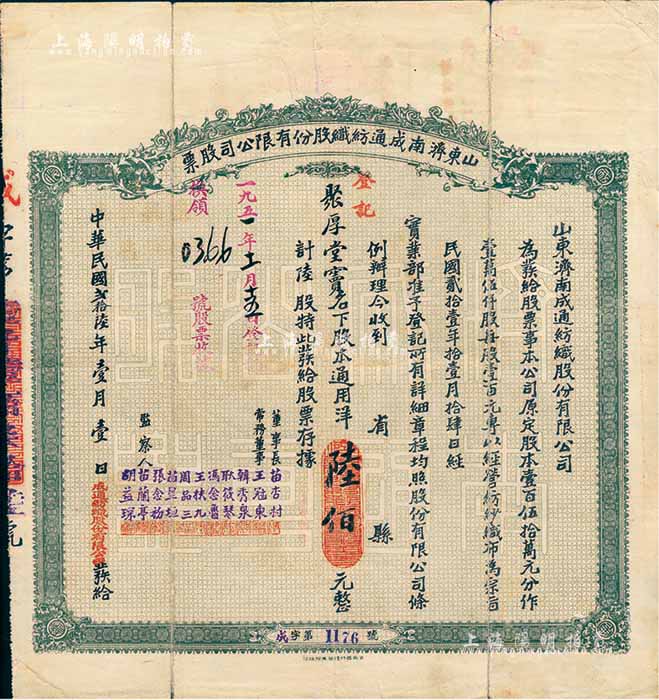 上海陽明拍賣
www.yangmingauction.com
山東濟南成通紡織股份有限公司股票
山東濟南成通紡織股份有限公司
為發給股票事本公司原定股本壹百伍拾萬元分作
壹萬伍仟股每股壹百元專以經營紡紗織布為宗旨
民國貳拾壹年拾壹月拾肆日經
實業部准予登記所有詳細章程均照股份有限公司條
例辦理今收到 省 縣
登記
聚厚堂竇名下股本通用洋陸佰元整
計陸股特此發給股票存據
一九五一年十一月十五日
換領
0366
號股票
董事長 苗杏村
常務董事 王冠東
韓秀泉
耿筱琴
馮念魯
王扶九
周品三
苗星垣
監察人 張念
苗蘭亭
胡益琛
中華民國貳拾陸年壹月壹日成通紡織股份有限公司發給
成字第1176號
上海陽明拍賣